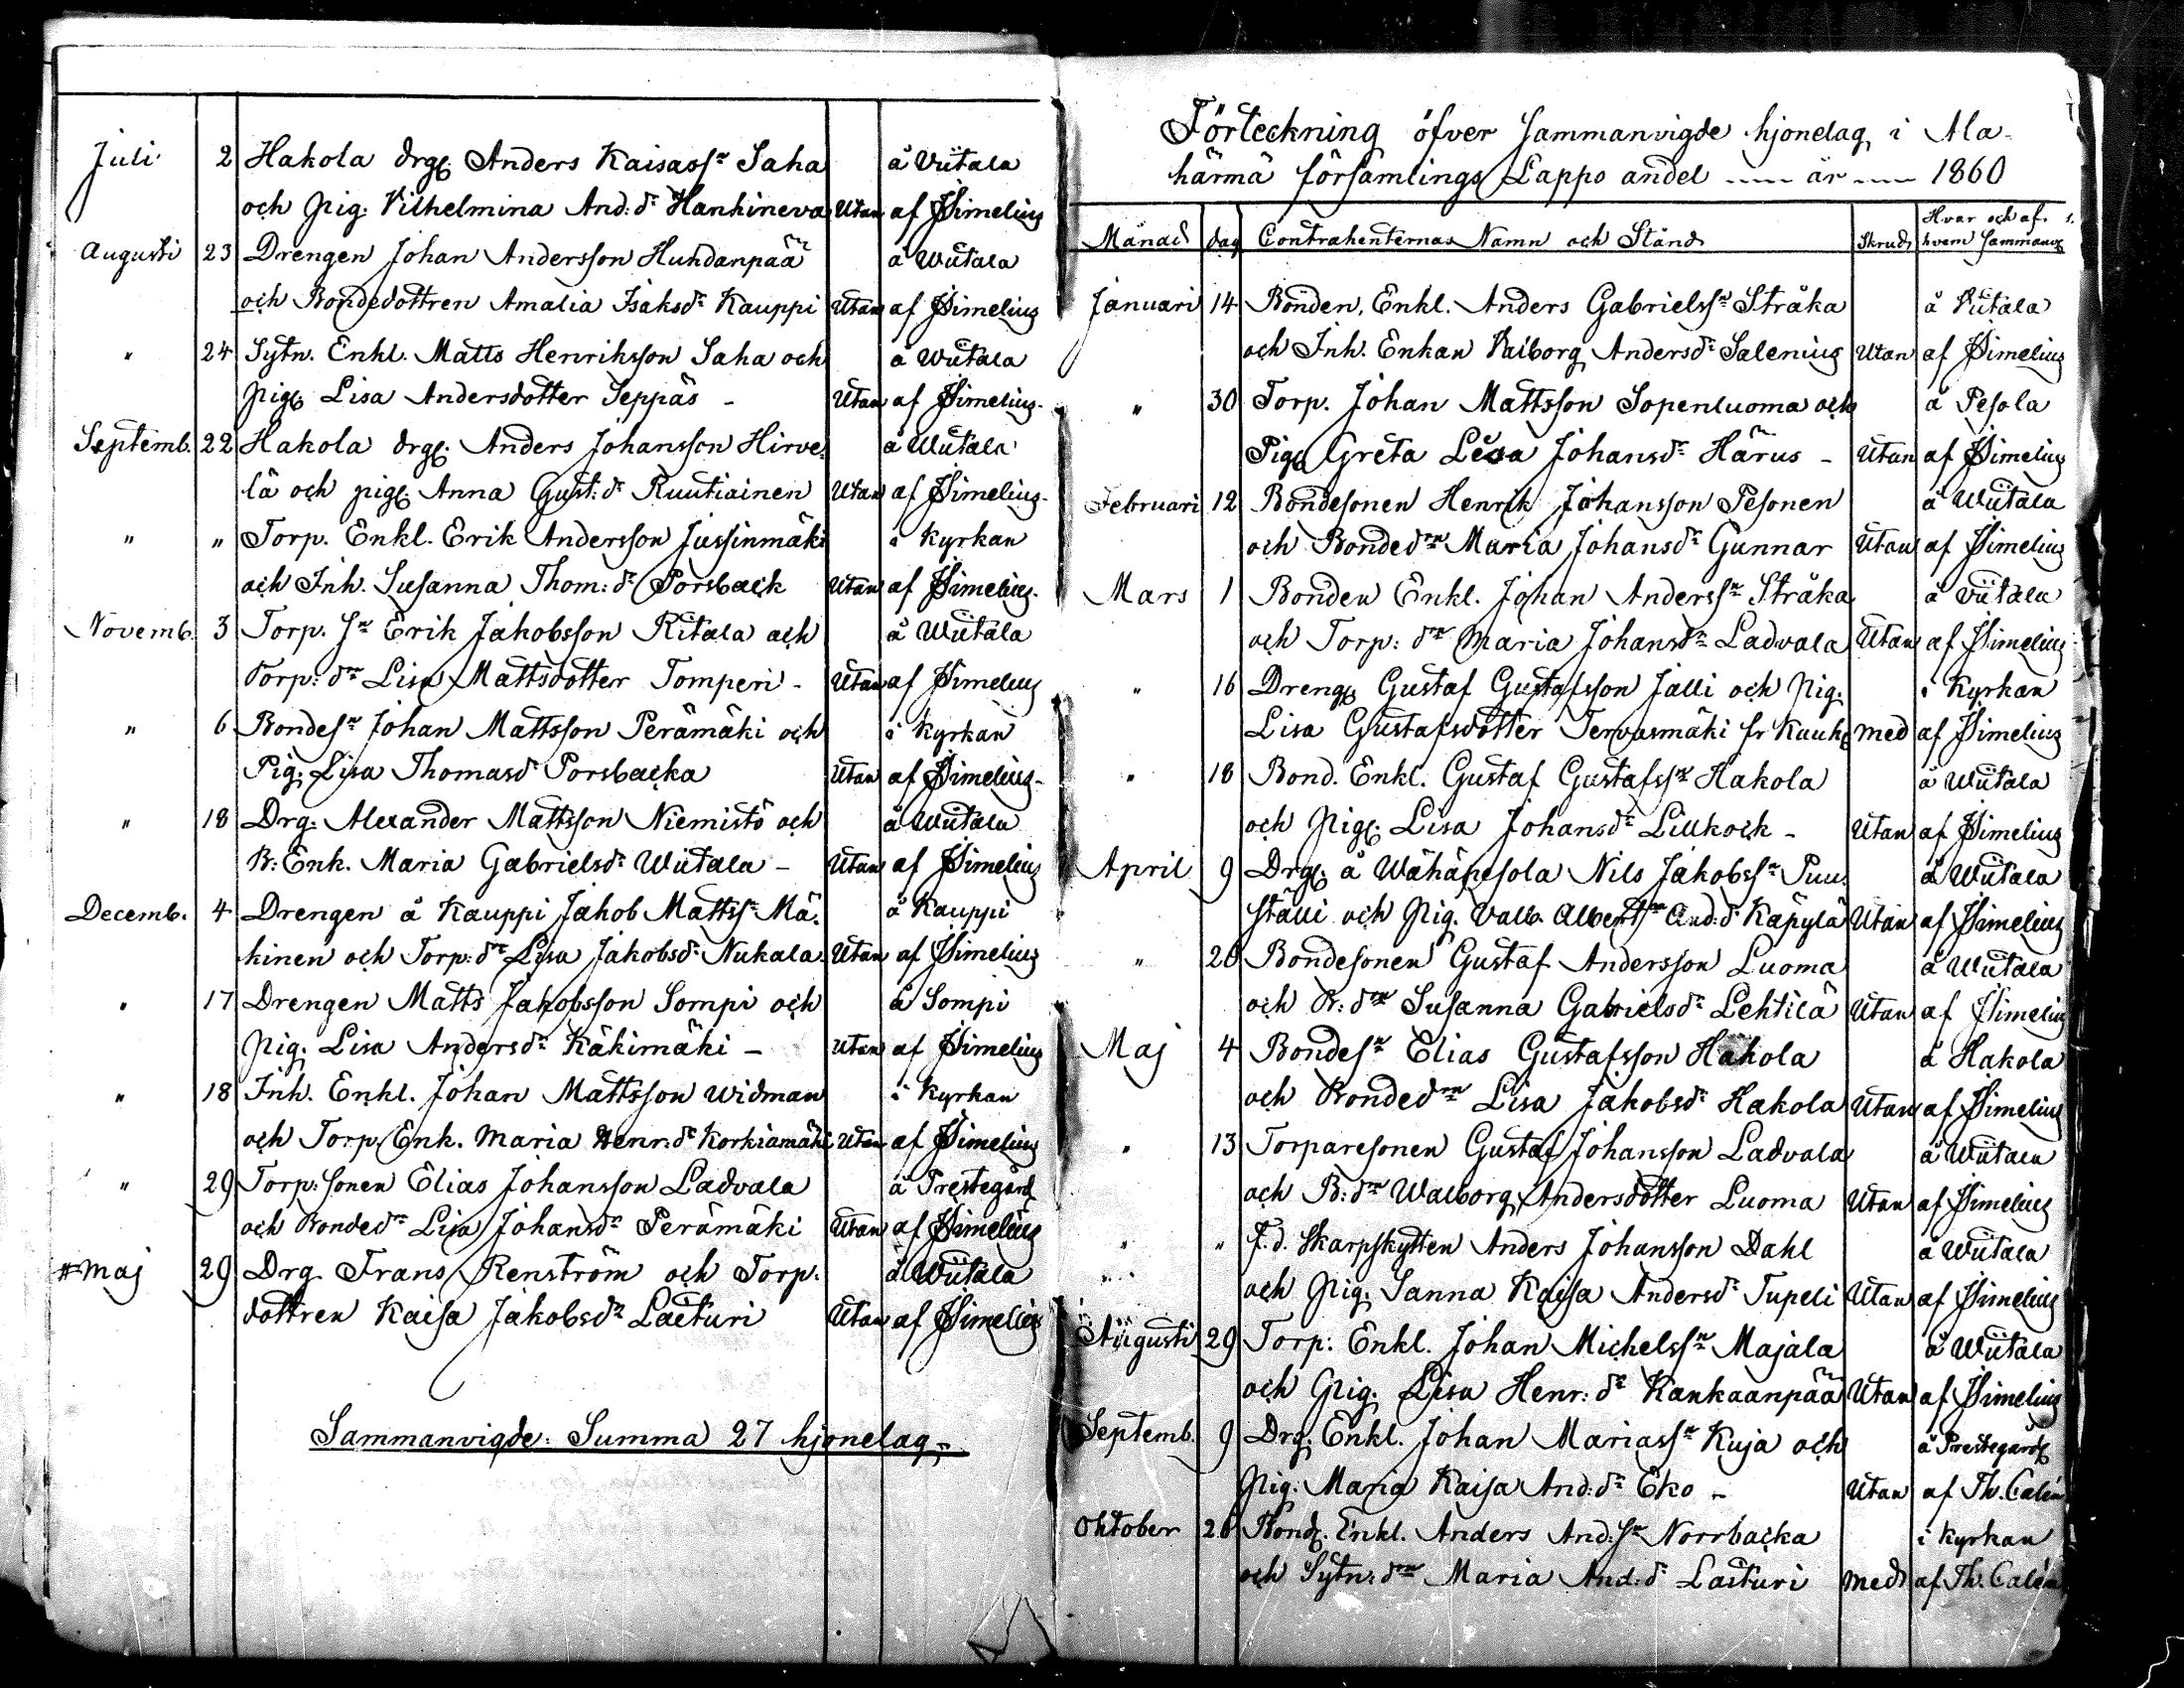 Juli 2 Hakola drg. Anders Kaisass:n Saha å Viitala
och Pig. Vilhelmina And:d:r Hanhineva Utan af Simelius
Augusti 23 Drengen Johan Andersson Huhdanpää å Wiitala
och Bondedottren Amalia Isaksd:r Kauppi Utan af Simelius
" 24 Sytn. Enkl. Matts Henriksson Saha och å Wiitala
Pig. Lisa Andersdotter Seppäs - Utan af Simelius
Septemb. 22 Hakola drg. Anders Johansson Hirve- å Wiitala
lä och pig. Anna Gust:d:r Ruutiainen Utan af Simelius
" " Torp. Enkl. Erik Andersson Jussinmäki i Kyrkan
och Inh. Susanna Thom:d:r Porsback Utan af Simelius
Novemb. 3 Torp. s:n Erik Jakobsson Ritala och å Wiitala
Torp:d:r Lisa Mattsdotter Tomperi - Utan af Simelius
" 6 Bondes:n Johan Mattsson Perämäki och i Kyrkan
Pig. Lisa Thomasd:r Porsbacka Utan af Simelius
" 18 Drg. Alexander Mattsson Niemistö och å Wiitala
B: Enk. Maria Gabrielsd:r Wiitala - Utan af Simelius
Decemb. 4 Drengen å Kauppi Jakob Mattss:n Mä- å Kauppi
kinen och Torp:d:r Lisa Jakobsd:r Nukala Utan af Simelius
" 17 Drengen Matts Jakobsson Sompi och å Sompi
Pig. Lisa Andersd:r Käkimäki - Utan af Simelius
" 18 Inh. Enkl. Johan Mattsson Widman i Kyrkan
och Torp. Enk. Maria Henr:d:r Korkiamäki Utan af Simelius
" 29 Torp:sonen Elias Johansson Ladvala å Prestegård
och Bonded:r Lisa Johansd:r Perämäki Utan af Simelius
# Maj 29 Drg. Frans Renström och Torp. å Wiitala
dottren Kaisa Jakobsd:r Lasturi Utan af Simelius
Sammanvigde: Summa 27 hjonelag -
Förteckning öfver Sammanvigde hjonelag i Ala-
härmä församlings Lappo andel ---- år ---- 1860
Månad dag Contrahenternas Namn och Stånd Skrud Hvar och af hvem Sammanvig.
Januari 14 Bonden, Enkl. Anders Gabrielss:n Stråka å Viitala
och Inh. Enkan Valborg Andersd:r Salenius Utan af Simelius
" 30 Torp. Johan Mattsson Sopenluoma och å Pesola
Pig. Greta Lisa Johansd:r Härus - Utan af Simelius
Februari 12 Bondesonen Henrik Johansson Pesonen å Wiitala
och Bonded:r Maria Johansd:r Gunnar Utan af Simelius
Mars 1 Bonden Enkl. Johan Anderss:n Stråka å Viitala
och Torp:d:r Maria Johansd:r Ladvala Utan af Simelius
" 16 Dreng. Gustaf Gustafsson Jalli och Pig. i Kyrkan
Lisa Gustafsdotter Tervasmäki fr Kauh. med af Simelius
" 18 Bond. Enkl. Gustaf Gustafss:n Hakola å Wiitala
och Pig. Lisa Johansd:r Lillkock - Utan af Simelius
April 9 Drg. å Wähäpesola Nils Jakobss:n Puu- å Wiitala
ställi och Pig. Valb. And:d:r Käpylä Utan af Simelius
" 20 Bondesonen Gustaf Andersson Luoma å Wiitala
och B:d:r Susanna Gabrielsd:r Lehtilä Utan af Simelius
Maj 4 Bondes:n Elias Gustafsson Hakola å Hakola
och Bonded:r Lisa Jakobsd:r Hakola Utan af Simelius
" 13 Torparesonen Gustaf Johansson Ladvala å Wiitala
och B:d:r Walborg Andersdotter Luoma Utan af Simelius
" " F.d. Skarpskytten Anders Johansson Dahl å Wiitala
och Pig. Sanna Kaisa Andersd:r Tupeli Utan af Simelius
Augusti 29 Torp: Enkl. Johan Michelss:n Majala å Wiitala
och Pig. Lisa Henr:d:r Kankaanpää Utan af Simelius
Septemb. 9 Drg. Enkl. Johan Mariass:n Kuja och å Prestegård
Pig. Maria Kaisa And:d:r Eko - Utan af Th. Calén
Oktober 28 Bond. Enkl. Anders And:s:n Norrbacka i Kyrkan
och Sytn:d:r Maria And:d:r Lasturi med af Th. Calén